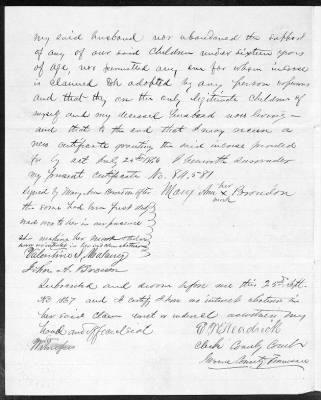 my said husband nor abandoned the support
of any of our said children under sixteen years
of age, nor permitted any one for whom increase
is claimed to be adopted by any person or persons
and that they are the only legitimate children of
myself and my deceased husband now living -
and that to the end that I may receive a
new certificate granting the said increase provided
for by act July 25th 1866 I herewith surrender
my present certificate No. 84,581
signed by Mary Ann Brondon after Mary Ann her X mark Brondon
the same had been first
read over to her in our presence
she making her mark
Valentine S. Malaney
John A. Brown
Subscribed and sworn before me this 25th Sept.
AD 1867 and I certify I have no interest whatever in
her said claim witness my
hand and official seal
Clerk County Court
County Tennessee